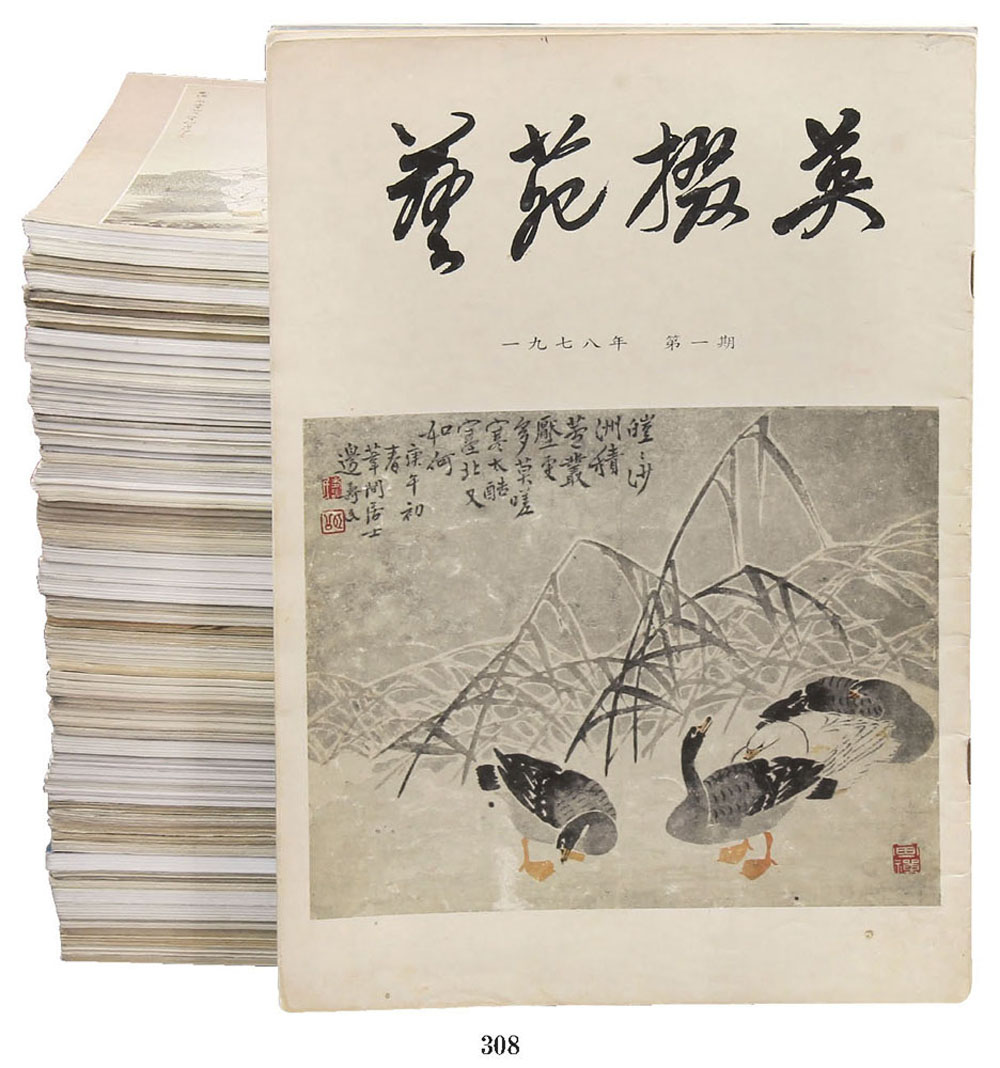 藝苑掇英
一九七八年 第一期
皚〻沙
洲積
蘆叢
壓更
多莫嗟
寒太酷
塞北又
如何
庚午初
春
葦間居士
邊壽民
308